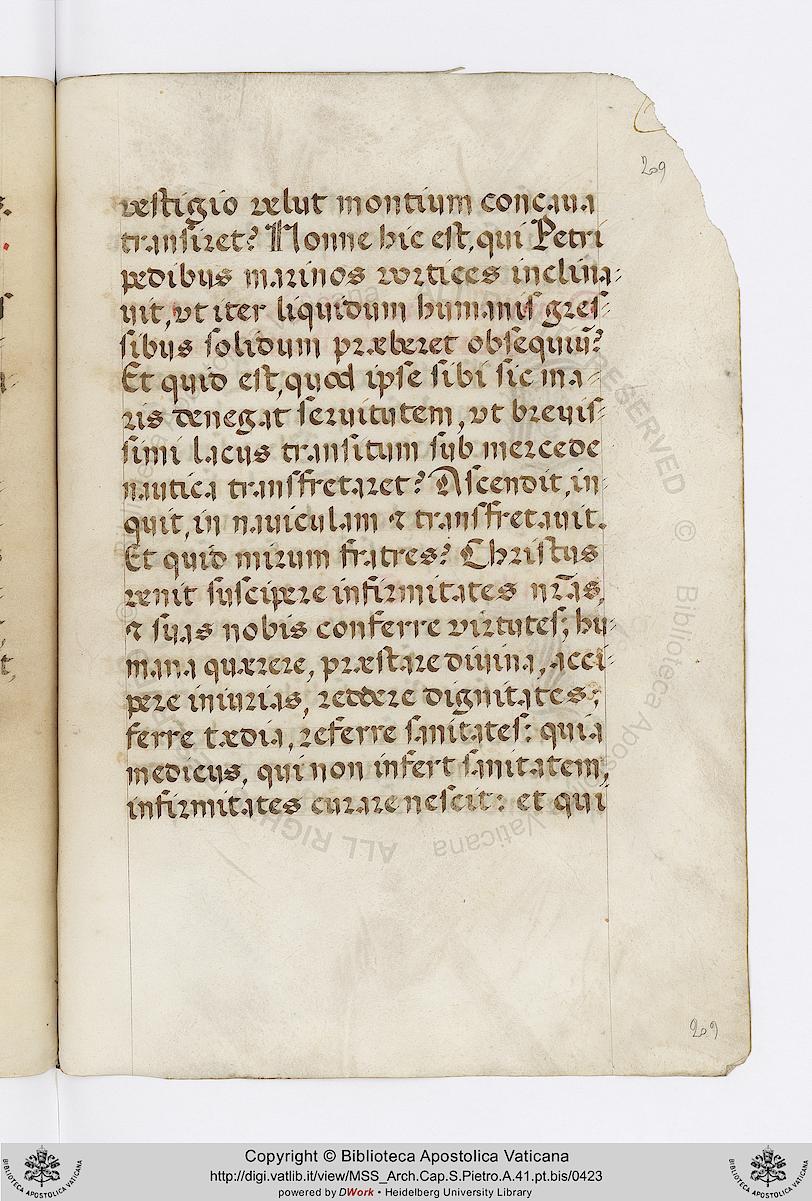 209
vestigio velut montium concaua
transiret? Nonne hic est, qui Petri
pedibus marinos vortices inclina-
uit, vt iter liquidum humanis gres-
sibus solidum præberet obsequiũ?
Et quid est, quod ipse sibi sic ma-
ris denegat seruitutem, vt breuis-
simi lacus transitum sub mercede
nautica transfretaret? Ascendit, in-
quit, in nauiculam ⁊ transfretauit.
Et quid mirum fratres? Christus
venit suscipere infirmitates nr̃as,
⁊ suas nobis conferre virtutes; hu-
mana quærere, præstare diuina, acci-
pere iniurias, reddere dignitates;
ferre tædia, referre sanitates: quia
medicus, qui non infert sanitatem,
infirmitates curare nescit: et qui
209
Copyright © Biblioteca Apostolica Vaticana
http://digi.vatlib.it/view/MSS_Arch.Cap.S.Pietro.A.41.pt.bis/0423
powered by DWork • Heidelberg University Library